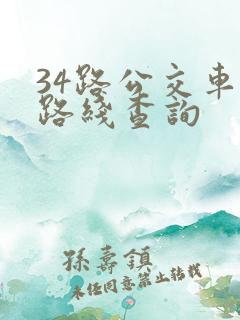 34路公交车
路线查詢
孫壽鎮
未经同意禁止转载